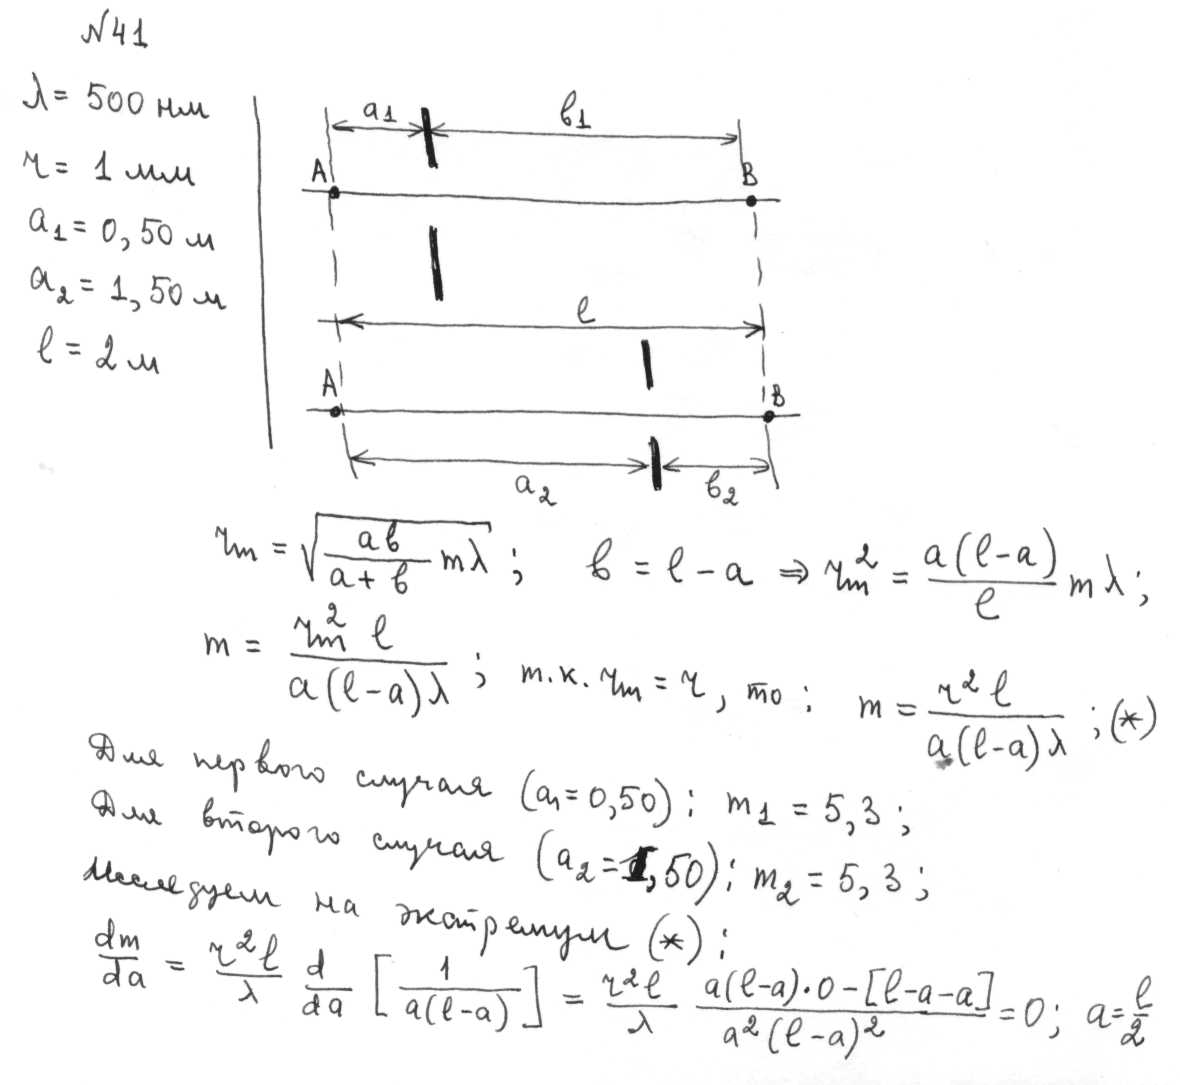 №41
λ = 500 нм
r = 1 мм
a₁ = 0,50 м
a₂ = 1,50 м
l = 2 м
a₁ b₁
A B
l
A B
a₂ b₂
rₘ = √(ab/(a+b) mλ) ; b = l − a ⇒ rₘ² = a(l−a)/l mλ ;
m = rₘ² l/(a(l−a)λ) ; т.к. rₘ = r, то : m = r² l/(a(l−a)λ) ; (*)
Для первого случая (a₁=0,50) : m₁ = 5,3 ;
Для второго случая (a₂=1,50) : m₂ = 5,3 ;
Исследуем на экстремум (*) :
dm/da = r²l/λ d/da [1/(a(l−a))] = r²l/λ (a(l−a)·0−[l−a−a])/(a²(l−a)²) = 0 ; a = l/2